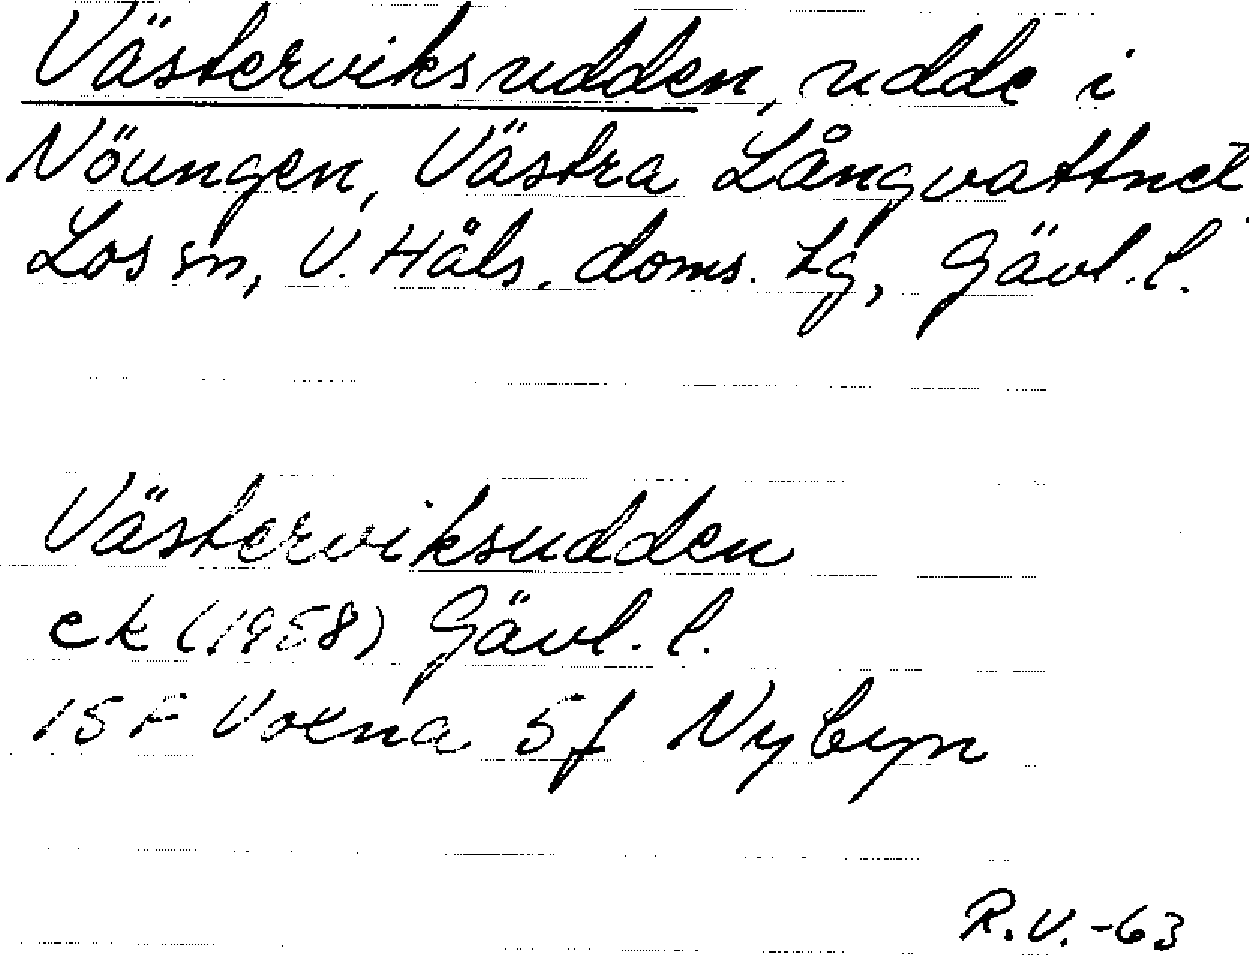 Västerviksudden, udde i
Nöungen, Västra Långvattnet
Los sn, V. Häls. doms. Lg, Gävl. l.
Västerviksudden
ek (1958) Gävl. l.
15 F Voxna 5f Nybyn
R.V.-63